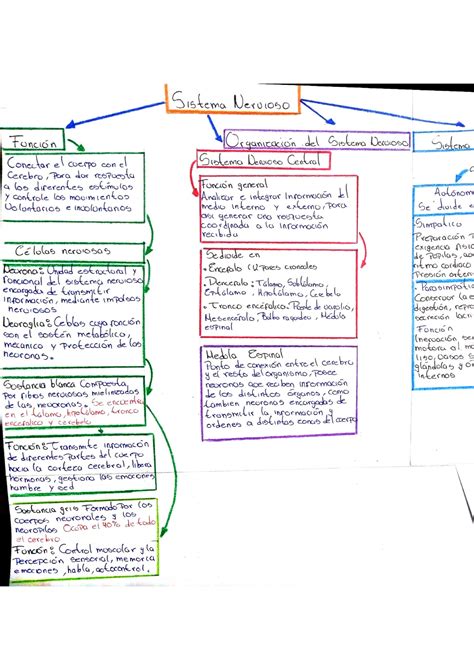 Sistema Nervioso
Función
Conectar el cuerpo con el
Cerebro, Para dar respuesta
a los diferentes estímulos
y controle los movimientos
Voluntarios e involuntarios
Células nerviosas
Neurona: Unidad estructural y
funcional del sistema nervioso
encargada de transmitir
información, mediante impulsos
nerviosos
Neuroglia: Células cuya función
con el sostén metabólico,
mecánico y Protección de las
neuronas.
Sustancia blanca Compuesta
Por fibras nerviosas mielinizadas
de las neuronas. Se encuentra
en el tálamo, hipotálamo, tronco
encefálico y cerebelo
Función: Transmite información
de diferentes Partes del cuerpo
hacia la corteza cerebral, libera
hormonas, gestiona las emociones
hambre y sed
Sustancia gris Formado Por los
cuerpos neuronales y los
neuropilos Ocupa el 40% de todo
el cerebro
Función: Control muscular y la
Percepción sensorial, memoria
emociones, habla, autocontrol.
Organización del Sistema Nervioso
Sistema Nervioso Central
Función general
Analizar e integrar Información del
medio interno y externo, Para
asi generar una respuesta
coordinada a la información
recibida
Se divide en
Encéfalo
Diencéfalo: Tálamo, Subtálamo,
Epitálamo, Hipotálamo, Cerebelo
Tronco encéfalico: Puente de varolio,
Mesencéfalo, Bulbo raquídeo, Médula
espinal
Medula Espinal
Punto de conexión entre el cerebro
y el resto del organismo, Posee
neuronas que reciben información
de los distintos órganos, como
también neuronas encargadas de
transmitir la información y
ordenes a distintas zonas del cuerpo
Sistema
Autónomo
Se divide e
Simpatico
Preparación
exigencia fisic
de Pupilas, ao
ritmo cardiaco
Presión arteri
Parasimpatic
Conservar la e
digestión,
secreción lacri
Función
Inervación se
motora al m
liso, vasos S
glándulas y o
Internos